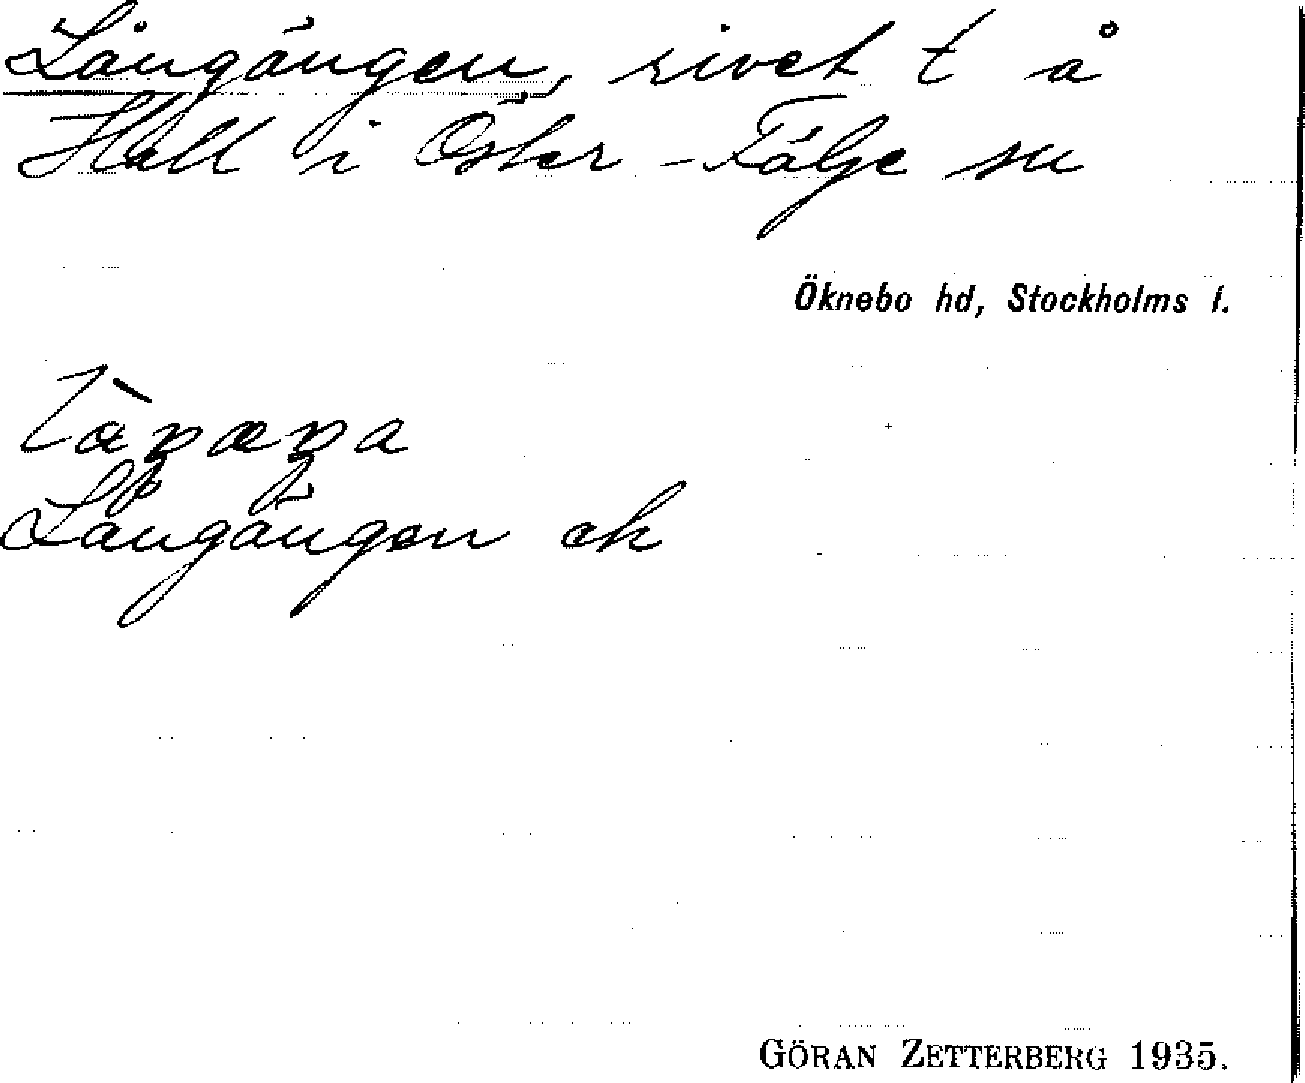 Långängen, rivet t å
Hall i Öster-Tälje sn
Öknebo hd, Stockholms l.
Långängen ek
GÖRAN ZETTERBERG 1935.